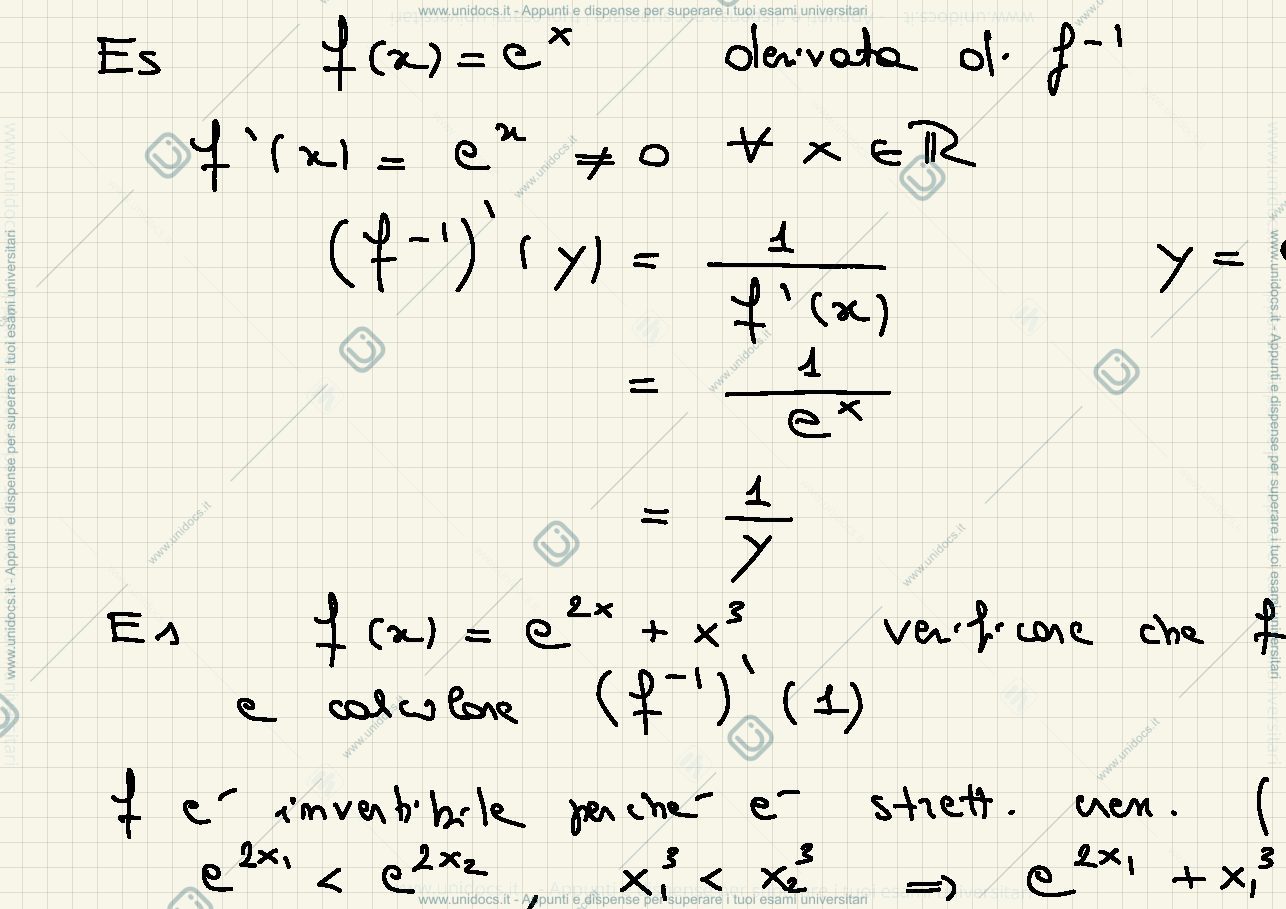 www.unidocs.it - Appunti e dispense per superare i tuoi esami universitari
Es f(x) = e^x derivata di f^-1
f'(x) = e^x ≠ 0 ∀ x ∈ ℝ
(f^-1)' (y) = 1/f'(x) y =
= 1/e^x
= 1/y
Es f(x) = e^2x + x^3 verificare che f
e calcolare (f^-1)' (1)
f è invertibile perché è strett. cresc. (
e^2x₁ < e^2x₂ , x₁^3 < x₂^3 ⟹ e^2x₁ + x₁^3
www.unidocs.it - Appunti e dispense per superare i tuoi esami universitari